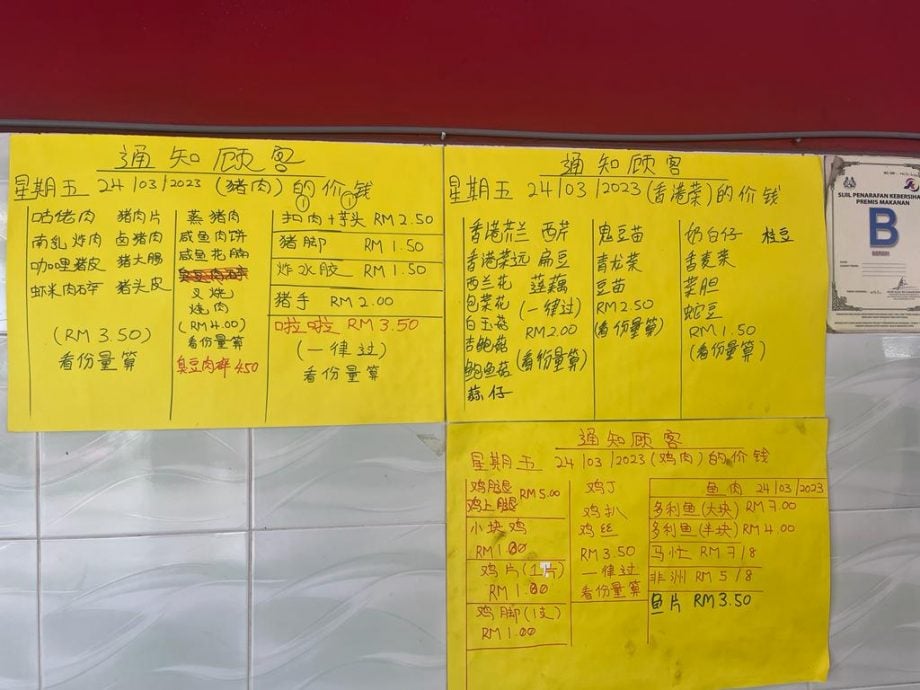 通知顾客
星期五 24/03/2023 (猪肉)的价钱
咕佬肉 猪肉片
南乳炸肉 卤猪肉
咖哩猪皮 猪大肠
虾米肉碎 猪头皮
(RM 3.50)
看份量算
蒸猪肉
咸鱼肉饼
咸鱼花腩
叉烧
烧肉
(RM 4.00)
看份量算
臭豆肉碎 4.50
扣肉+芋头 RM 2.50
猪脚 RM 1.50
炸水胶 RM 1.50
猪手 RM 2.00
啦啦 RM 3.50
(一律过)
看份量算
通知顾客
星期五 24/03/2023 (香港菜)的价钱
香港芥兰 西芹
香港菜远 扁豆
西兰花 莲藕
包菜花 (一律过)
白玉菇 RM2.00
杏鲍菇 (看份量算)
鲍鱼菇
蒜仔
鬼豆苗
青龙菜
豆苗
RM2.50
(看份量算)
奶白仔 枝豆
香麦菜
菜胆
蛇豆
RM 1.50
(看份量算)
SIJIL PENARAFAN KEBERSIHAN
PREMIS MAKANAN
B
通知顾客
星期五 24/03/2023 (鸡肉)的价钱
鸡腿 RM 5.00
鸡上腿
小块鸡
RM 1.80
鸡片
RM 1.80
鸡脚(1支)
RM 1.00
鸡丁
鸡扒
鸡丝
RM 3.50
一律过
看份量算
鱼肉 24/03/2023
多利鱼(大块) RM 7.00
多利鱼(半块) RM 4.00
马忙 RM 7/8
非洲 RM 5/8
鱼片 RM 3.50